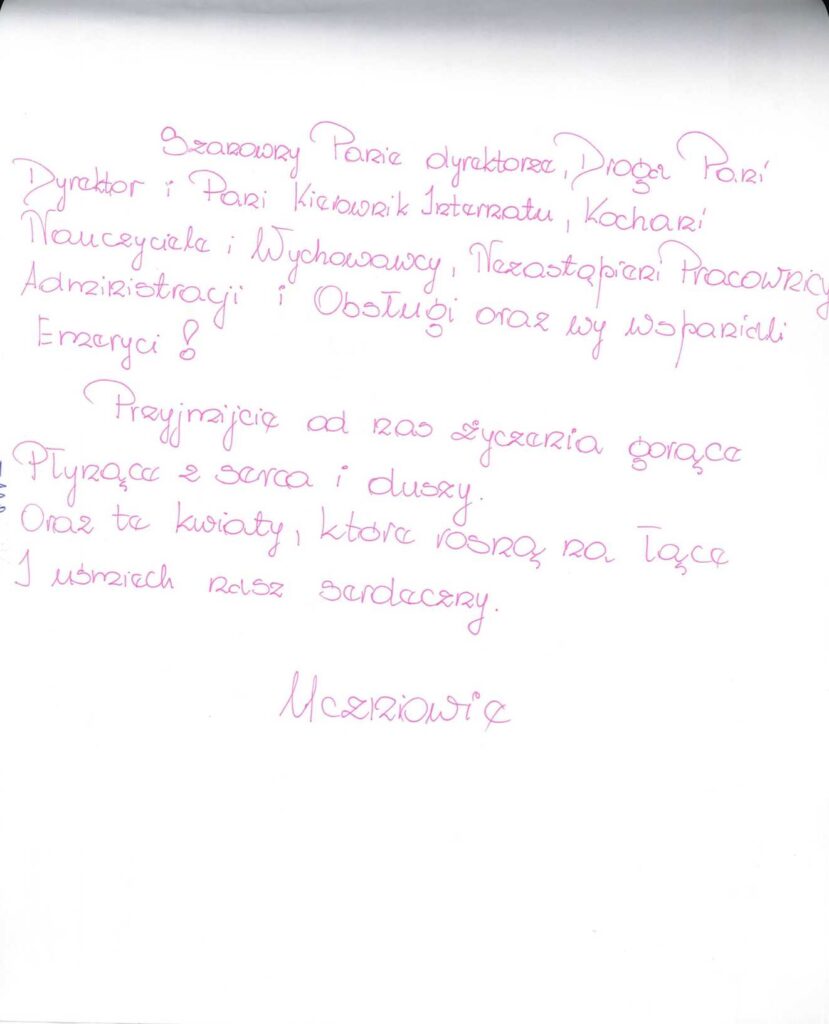 Szanowny Panie dyrektorze, Droga Pani
Dyrektor i Pani Kierownik Internatu, Kochani
Nauczyciele i Wychowawcy, Niezastąpieni Pracownicy
Administracji i Obsługi oraz wy wspaniali
Emeryci!
Przyjmijcie od nas życzenia gorące
Płynące z serca i duszy.
Oraz te kwiaty, które rosną na łące
I uśmiech nasz serdeczny.
Uczniowie